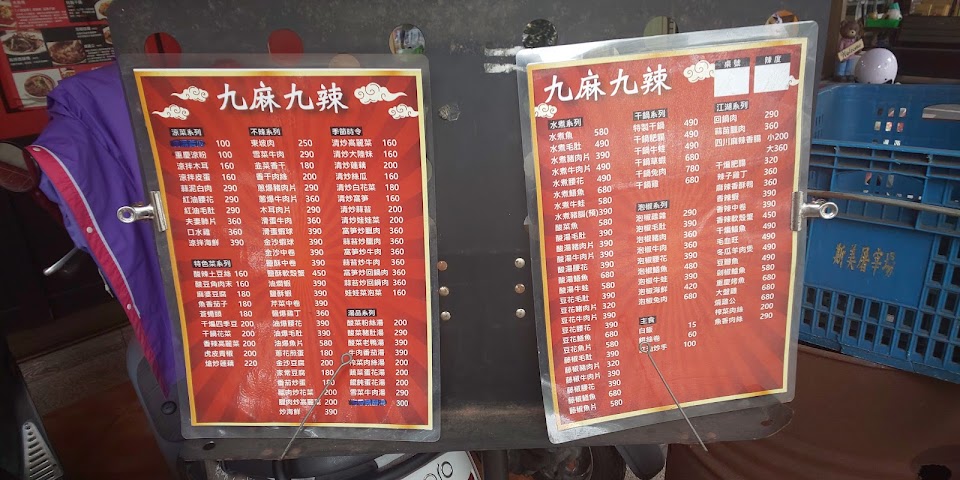 九麻九辣
涼菜系列
100
重慶涼粉 100
涼拌木耳 160
涼拌皮蛋 160
蒜泥白肉 290
紅油腰花 290
紅油毛肚 290
夫妻肺片 360
口水雞 360
涼拌海鮮 390
特色菜系列
酸辣土豆絲 160
酸豆角肉末 160
麻婆豆腐 180
魚香茄子 180
蒼蠅頭 180
干煸四季豆 200
干鍋花菜 200
香辣高麗菜 200
虎皮青椒 200
熗炒蓮藕 220
不辣系列
東坡肉 250
雪菜牛肉 290
韭菜香干 180
香干肉絲 200
蔥爆豬肉片 290
蔥爆牛肉片 360
木耳肉片 290
滑蛋牛肉 360
滑蛋蝦球 390
金沙蝦球 390
金沙中卷 390
鹽酥中卷 390
鹽酥軟殼蟹 450
油燜蝦 390
鹽酥蝦 390
芹菜中卷 390
醬爆雞丁 360
油爆腰花 390
油爆毛肚 390
油爆魚片 580
蔥花煎蛋 180
金沙豆腐 200
家常豆腐 180
番茄炒蛋 180
臘肉炒花菜 200
臘肉炒高麗菜 200
炒海鮮 390
季節時令
清炒高麗菜 160
清炒大陸妹 160
清炒蓮藕 200
清炒絲瓜 160
清炒白花菜 180
清炒富筍 160
清炒蒜苔 200
清炒娃娃菜 160
富筍炒臘肉 360
蒜苔炒臘肉 360
蒜苔炒牛肉 360
富筍炒牛肉 360
富筍炒回鍋肉 360
蒜苔炒回鍋肉 360
娃娃菜泡菜 160
湯品系列
酸菜粉絲湯 200
酸菜豬肚湯 290
酸菜老鴨湯 390
牛肉番茄湯 390
榨菜肉絲湯 200
蔬菜蛋花湯 200
餛飩蛋花湯 200
雪菜牛肉湯 290
300
九麻九辣
桌號
辣度
水煮系列
水煮魚 580
水煮毛肚 490
水煮豬肉片 390
水煮牛肉片 390
水煮腰花 490
水煮鱔魚 680
水煮牛蛙 580
水煮豬腦(預)390
酸菜魚 580
酸湯毛肚 390
酸湯豬肉片 390
酸湯牛肉片 390
酸湯腰花 390
酸湯鱔魚 680
酸湯牛蛙 580
豆花毛肚 390
豆花豬肉片 320
豆花牛肉片 390
豆花腰花 390
豆花鱔魚 680
豆花魚片 580
藤椒毛肚 390
藤椒豬肉片 320
藤椒牛肉片 390
藤椒腰花 390
藤椒鱔魚 680
藤椒魚片 580
干鍋系列
特製干鍋 490
干鍋肥腸 490
干鍋牛蛙 490
干鍋草蝦 680
干鍋兔肉 780
干鍋雞 680
泡椒系列
泡椒雞雜 290
泡椒毛肚 390
泡椒豬肉 360
泡椒牛肉 360
泡椒腰花 390
泡椒鱔魚 480
泡椒牛蛙 390
泡椒海鮮 420
泡椒兔肉 680
主食
白飯 15
銀絲卷 60
炒手 100
江湖系列
回鍋肉 290
蒜苗臘肉 360
四川麻辣香腸 小200
大360
干煸肥腸 320
辣子雞丁 360
麻辣香酥鴨 360
香辣蝦 390
香辣中卷 390
香辣軟殼蟹 450
干煸鱔魚 480
毛血旺 490
冬瓜羊肉煲 490
豆瓣魚 580
剁椒鱸魚 580
重慶烤魚 680
大盤雞 680
燒雞公 680
榨菜肉絲 200
魚香肉絲 290
新美屠宰場